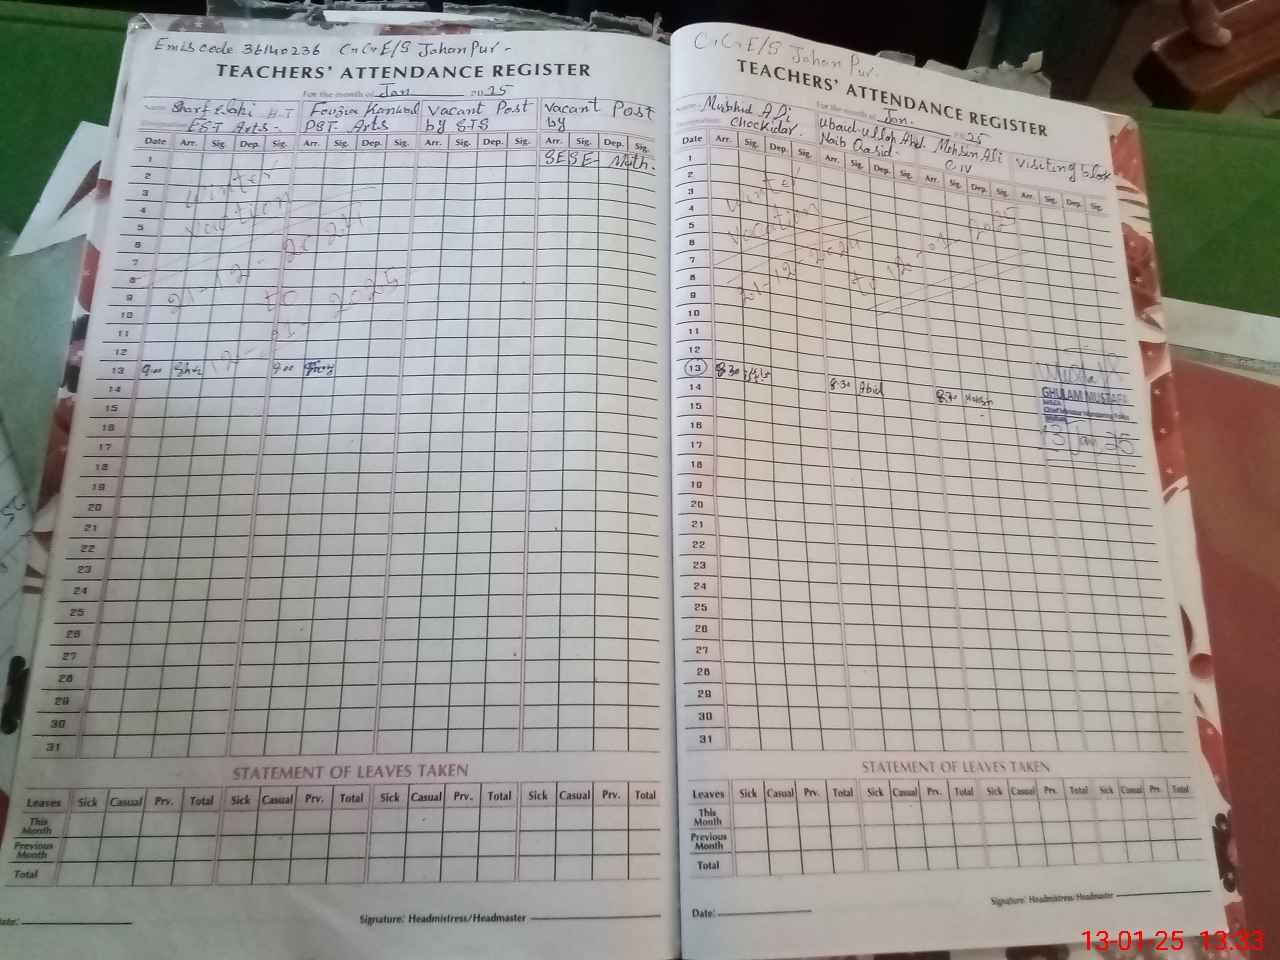 Emis code 36140236 G.G.E/S Jahan Pur.
TEACHERS' ATTENDANCE REGISTER
For the month of Jan 2025
Name Sharf Elahi H.T Fouzia Kanwal Vacant Post Vacant Post
EST Arts. PST Arts by STS by
Date Arr. Sig. Dep. Sig. Arr. Sig. Dep. Sig. Arr. Sig. Dep. Sig. Arr. Sig. Dep. Sig.
1 SESE- Math.
2
3 Winter
4 vacation
5
6
7
8 21-12-2024
9 to
10 2025
11
12 12-01
13 9:00 9:00
14
15
16
17
18
19
20
21
22
23
24
25
26
27
28
29
30
31
STATEMENT OF LEAVES TAKEN
Leaves Sick Casual Prv. Total Sick Casual Prv. Total Sick Casual Prv. Total Sick Casual Prv. Total
This Month
Previous Month
Total
Date: Signature: Headmistress/Headmaster
G.G.E/S Jahan Pur.
TEACHERS' ATTENDANCE REGISTER
For the month of Jan. 2025
Name Murshid Ali Ubaid ullah Abd Mohsin Ali Visiting block
Chockidar. Naib Qasid. C IV
Date Arr. Sig. Dep. Sig. Arr. Sig. Dep. Sig. Arr. Sig. Dep. Sig. Arr. Sig. Dep. Sig.
1
2
3 Winter
4
5 vacation
6
7
8 21-12-2024 to 12-01-2025
9
10
11
12
13 8:30 8:30 Abid 8:30 Mohsin
14 GHULAM MUSTAFA
15 Chief Minister Monitoring Force
16
17 13 Jan 25
18
19
20
21
22
23
24
25
26
27
28
29
30
31
STATEMENT OF LEAVES TAKEN
Leaves Sick Casual Prv. Total Sick Casual Prv. Total Sick Casual Prv. Total Sick Casual Prv. Total
This Month
Previous Month
Total
Date: Signature: Headmistress/Headmaster
13-01-25 13:33